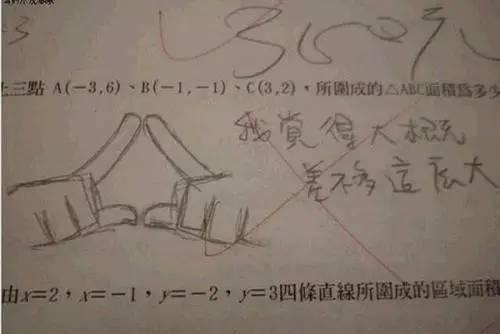 上三點 A(−3,6)、B(−1,−1)、C(3,2)，所圍成的△ABC面積為多少
我覺得大概
差不多這麼大
由x=2，x=−1，y=−2，y=3四條直線所圍成的區域面積